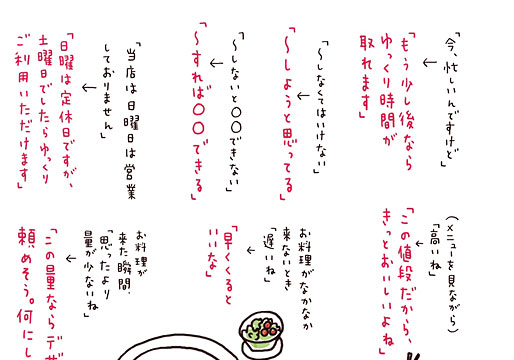 「今、忙しいんですけど」
←
「もう少し後なら
ゆっくり時間が
取れます」
「〜しなくてはいけない」
←
「〜しようと思ってる」
「〜しないと〇〇できない」
←
「〜すれば〇〇できる」
「当店は日曜日は営業
しておりません」
←
「日曜は定休日ですが、
土曜日でしたらゆっくり
ご利用いただけます」
(メニューを見ながら)
「高いね」
←
「この値段だから、
きっとおいしいよね」
お料理がなかなか
来ないとき
「遅いね」
←
「早くくると
いいな」
お料理が
来た瞬間、
「思ったより
量が少ないね」
←
「この量ならデザ
頼めそう。何にし